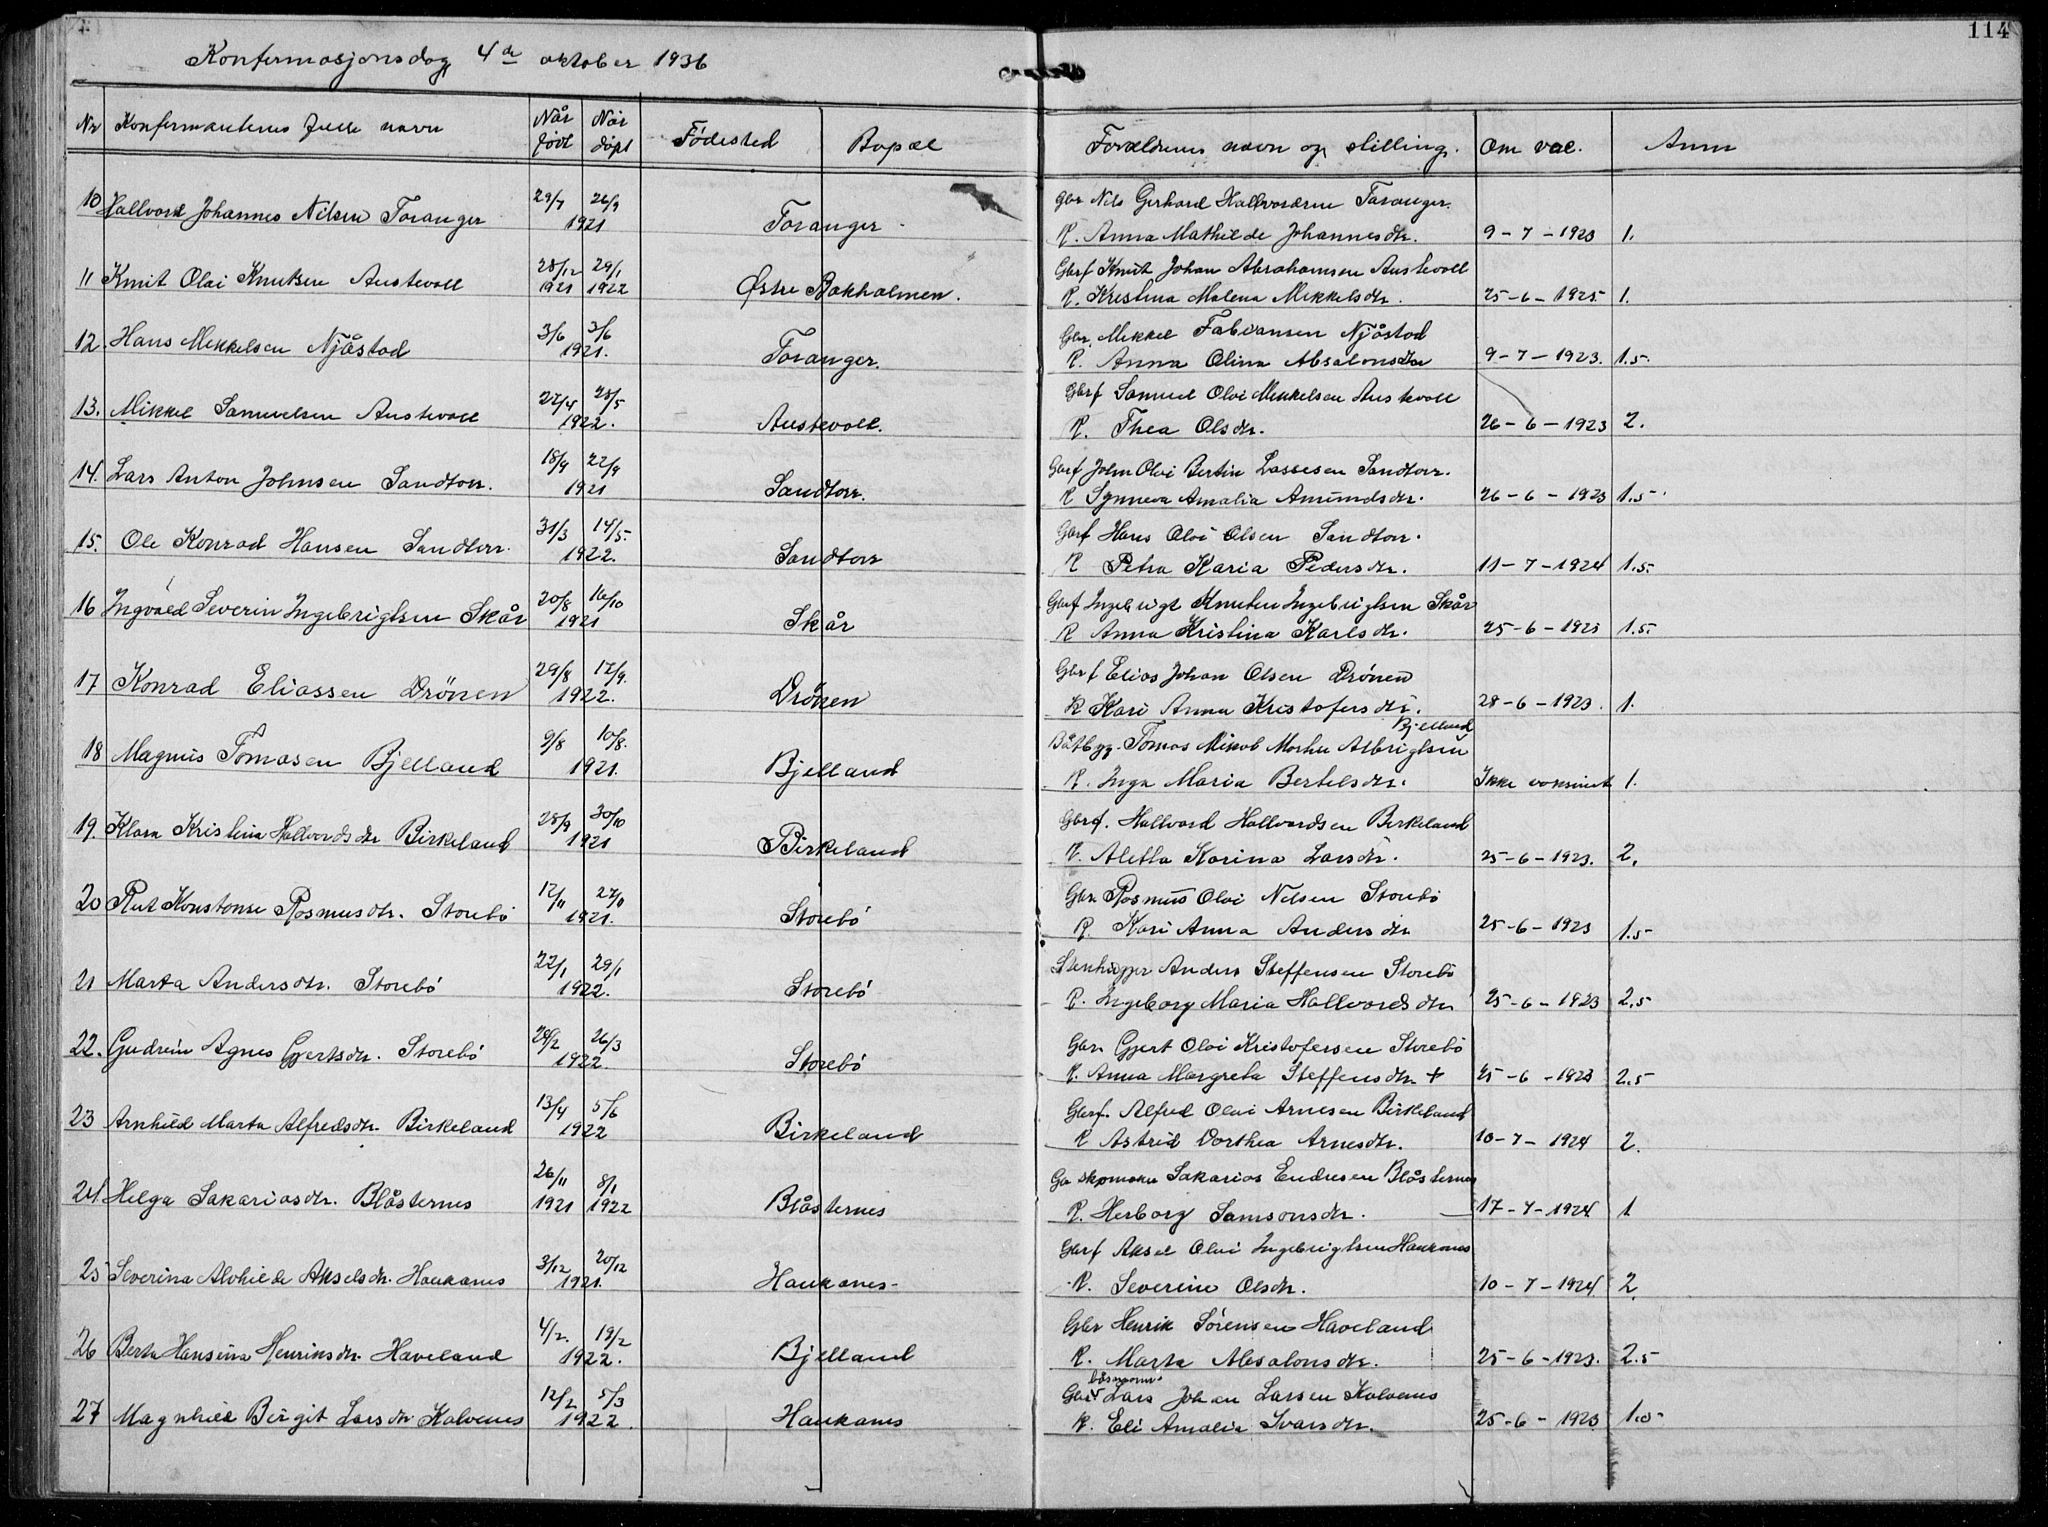 114
Konfermasjonsdag 4de oktober 1936
Nr Konfermantenes fulle navn Når født Når døpt Fødested Bopæl Foreldrenes navn og stilling. Om vac. Anm
10 Hallvard Johannes Nilsen Toranger 29/7 26/9 1921 Toranger
Gbr Nils Gerhard Hallvardsen Toranger.
K. Anna Mathilde Johannesdtr. 9-7-1923 1.
11 Knut Olai Knutsen Austevoll 28/12 1921 29/1 1922 Østre Bakholmen.
Gbrf Knut Johan Abrahamsen Austevoll
K. Kristina Malena Mikkelsdtr. 25-6-1925 1.
12. Hans Mikkelsen Njåstad 3/6 3/6 1921. Toranger.
Gbr. Mikkel Fabiansen Njåstad
K. Anna Olina Absalonsdtr 9-7-1923. 1.5.
13. Mikkel Samuelsen Austevoll 22/4 28/5 1922. Austevoll.
Gbrf Samuel Olai Mikkelsen Austevoll
K. Thea Olsdtr. 26-6-1923 2.
14. Lars Anton Johnsen Sandtorr. 18/9 22/9 1921 Sandtorr.
Gbrf John Olai Bertin Lassesen Sandtorr.
K Synneva Amalia Amundsdtr. 26-6-1923 1.5.
15. Ole Konrad Hansen Sandtorr. 31/3 14/5. 1922. Sandtorr
Gbrf Hans Olai Olsen Sandtorr.
K Petra Karia Pedersdtr. 11-7-1924 1.5.
16 Ingvald Severin Ingebrigtsen Skår 20/8 16/10 1921 Skår
Gbrf Ingebrigt Knutsen Ingebrigtsen Skår
K Anna Kristina Karlsdtr. 25-6-1923 1.5.
17 Konrad Eliassen Drönen 29/8 17/9. 1922. Drönen
Gbrf Elias Johan Olsen Drönen
K Kari Anna Kristofersdtr. 28-6-1923. 1.
18 Magnus Tomasen Bjelland 9/8 10/8. 1921. Bjelland
Båtbyg. Tomas Mikal Albrigtsen Bjelland
K. Inga Maria Bertelsdtr. Ikke vaksinert 1.
19. Klara Kristina Hallvordsdtr Birkeland 28/9 30/10 1921 Birkeland
Gbrf. Hallvard Hallvardsen Birkeland
K. Aletta Karina Larsdtr. 25-6-1923. 2.
20 Rut Konstanse Rasmusdtr. Storebö 12/11 27/11 1921. Storebö
Gbr. Rasmus Olai Nilsen Storebö
K. Kari Anna Andersdtr 25-6-1923 1.5
21 Marta Andersdtr. Storebö 22/1 29/1 1922. Storebö
Stenhugger Anders Steffensen Storebö
K. Ingeborg Maria Hallvordsdtr 25-6-1923 2.5
22. Gudrun Agnes Gjertsdtr. Storebö 28/2 26/3 1922. Storebö
Gbr. Gjert Olai Kristofersen Storebö
K. Anna Margreta Steffensdtr + 25-6-1923 2.5
23 Arnhild Marta Alfredsdtr. Birkeland 13/4 5/6 1922 Birkeland
Gbrf. Alfred Olai Arnesen Birkeland
K Astrid Dorthea Arnesdtr. 10-7-1924 2.
24 Helga Sakariasdtr. Blåsternes 26/11 1921 8/1 1922 Blåsternes
Ga skomaker Sakarias Endresen Blåsternes
K. Herborg Samsonsdtr. 17-7-1924 1
25 Severina Alvhilde Akselsdtr. Haukanes 3/12 20/12 1921. Haukanes
Gbrf Aksel Olai Ingebrigtsen Haukanes
K. Severine Olsdtr. 10-7-1924 2.
26 Berta Hansina Henriksdtr. Haveland 4/2. 19/2 1922. Bjelland
Gbr Henrik Sörensen Haveland
K. Marta Absalonsdtr. 25-6-1923. 2.5
27 Magnhild Birgit Larsdtr Kalvenes 12/2 5/3 1922. Haukanes
Lars Johan Larsen Kalvenes
K. Eli Amalia Ivarsdtr. 25-6-1923